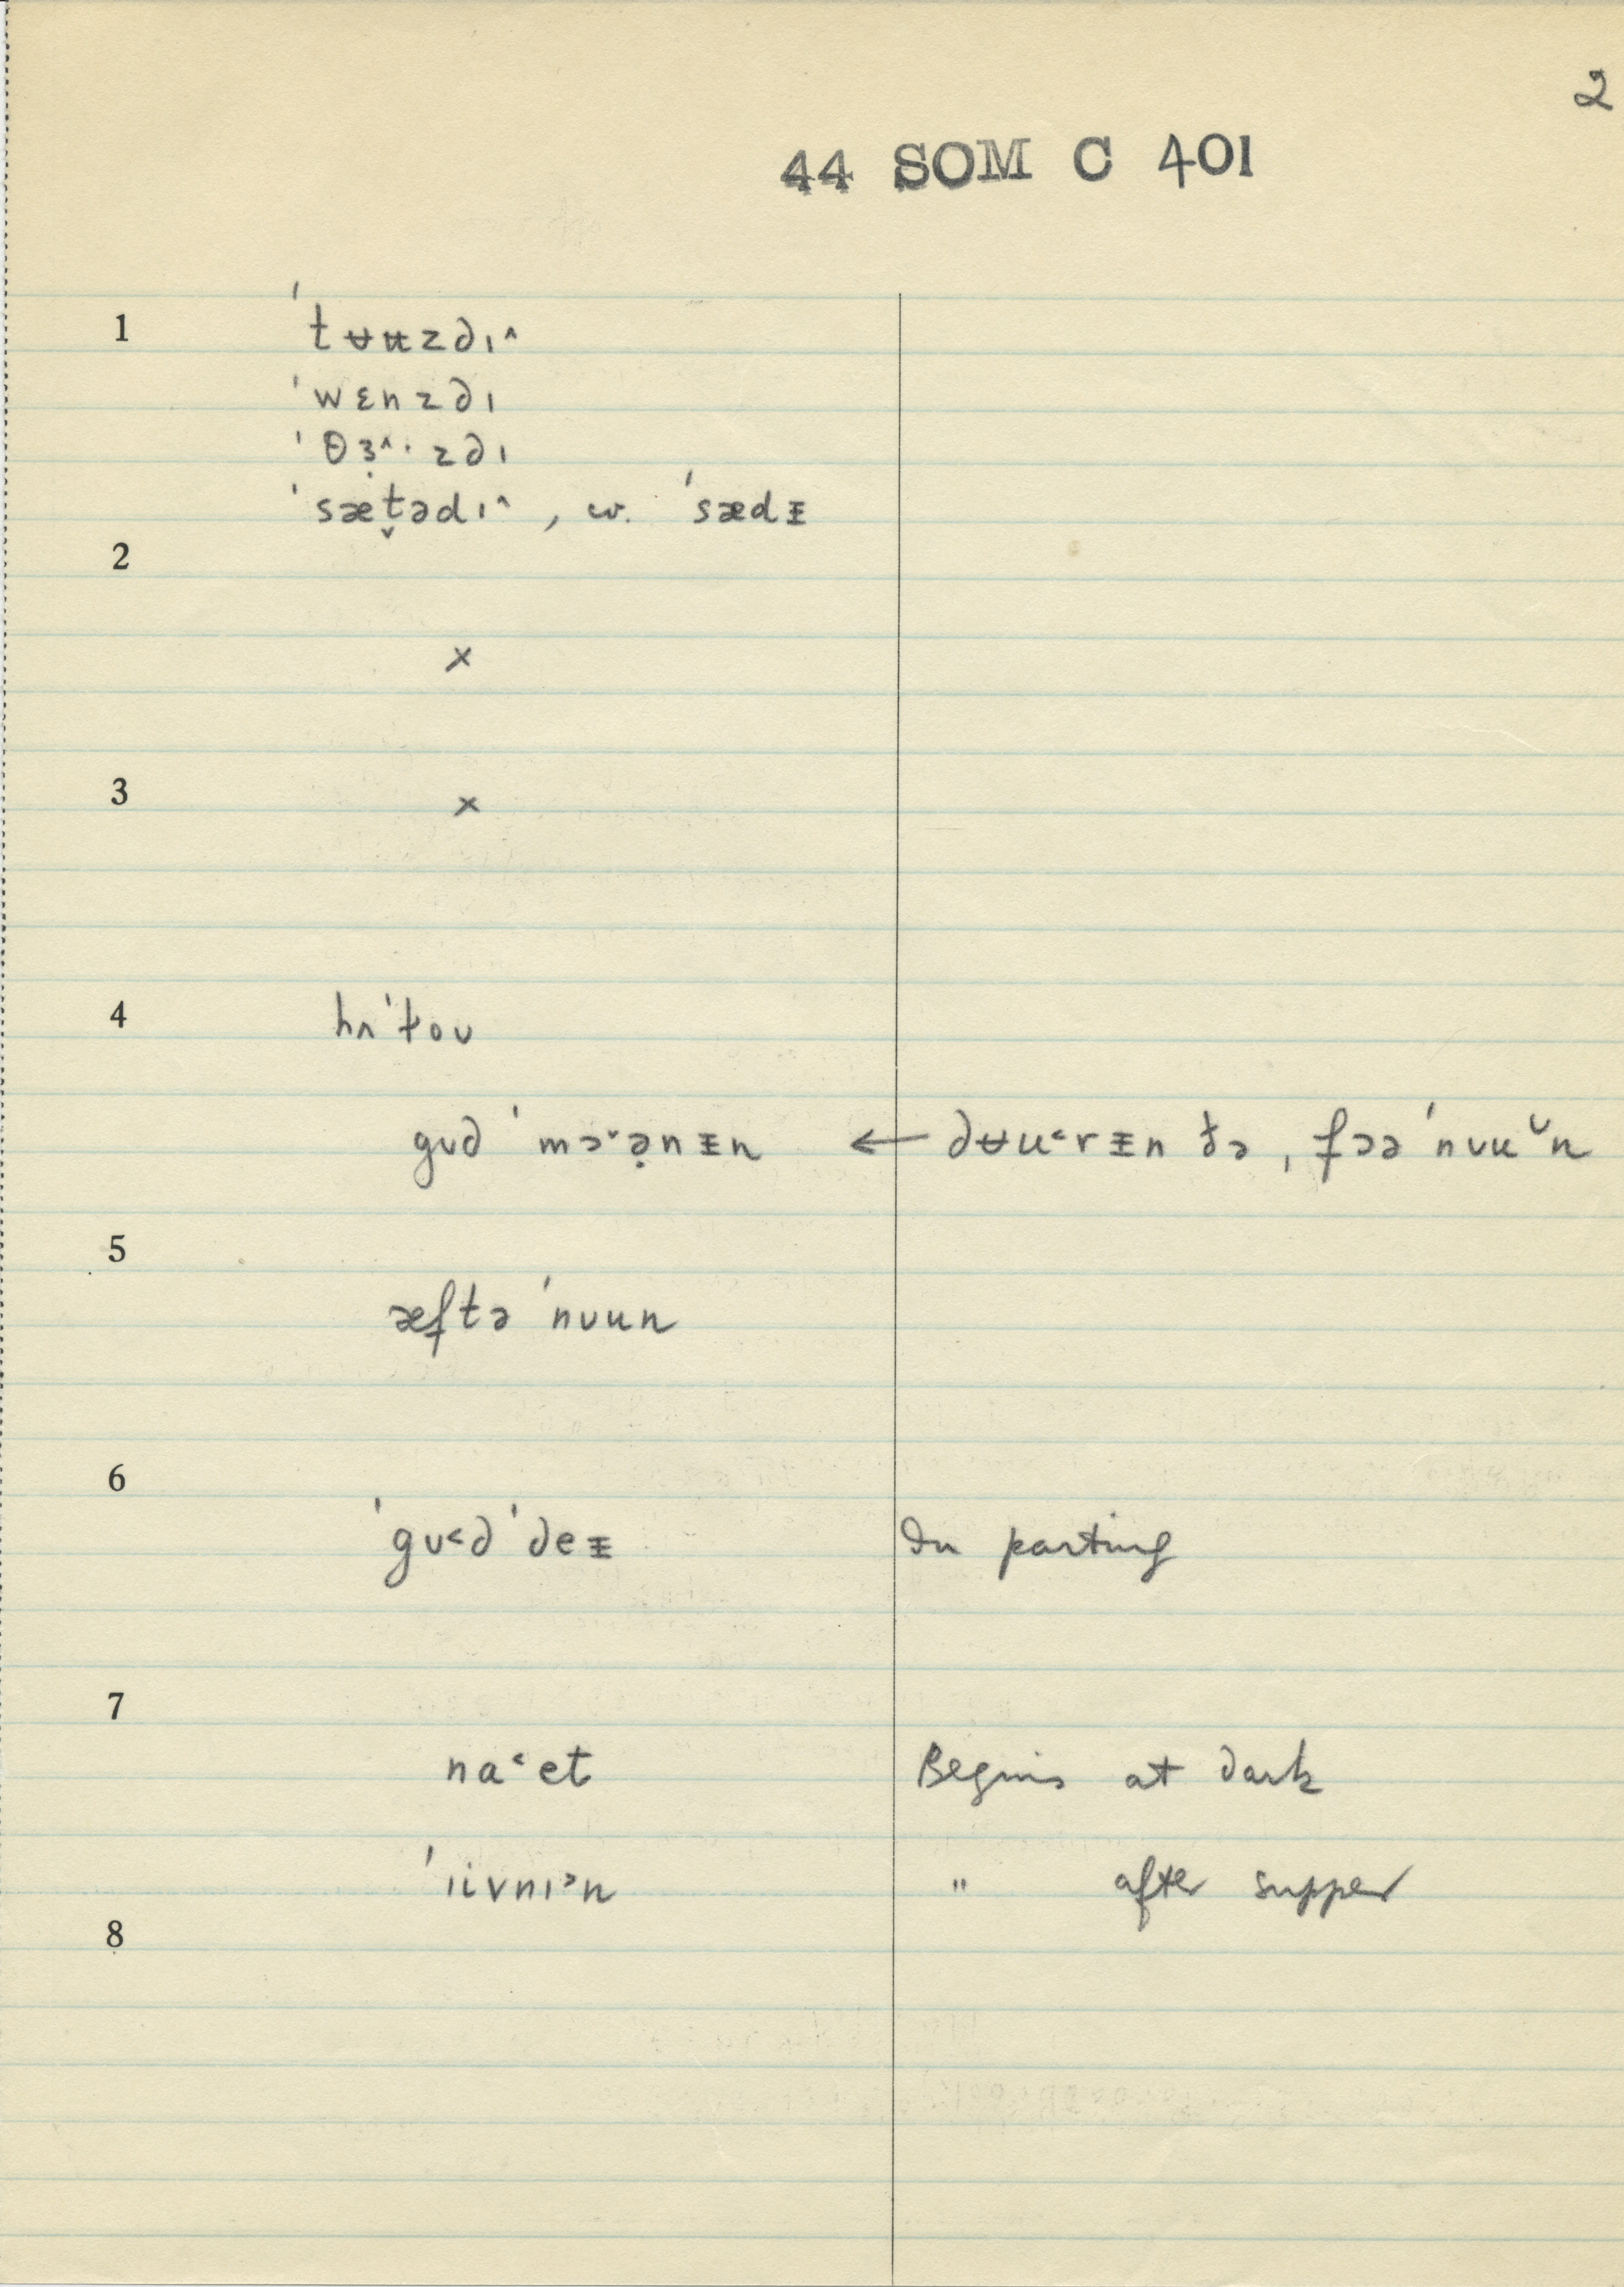 2
44 SOM C 401
1 ˈtʉʉzdɪ^
ˈwɛnzdɪ
ˈθɜ̣^·zdɪ
ˈsæt̬ədɪ^, w. ˈsædᵻ
2
×
3 ×
4 hʌˈɫoʊ
gʊd ˈmɔ˅ə̣nᵻn ← dʉu˂rᵻn ðə, fɔəˈnʊu˅n
5
æftəˈnʊun
6
ˈgʊ˂dˈdeᵻ In parting
7
na˂et Begins at dark
ˈɪivnɪ˃n " after supper
8